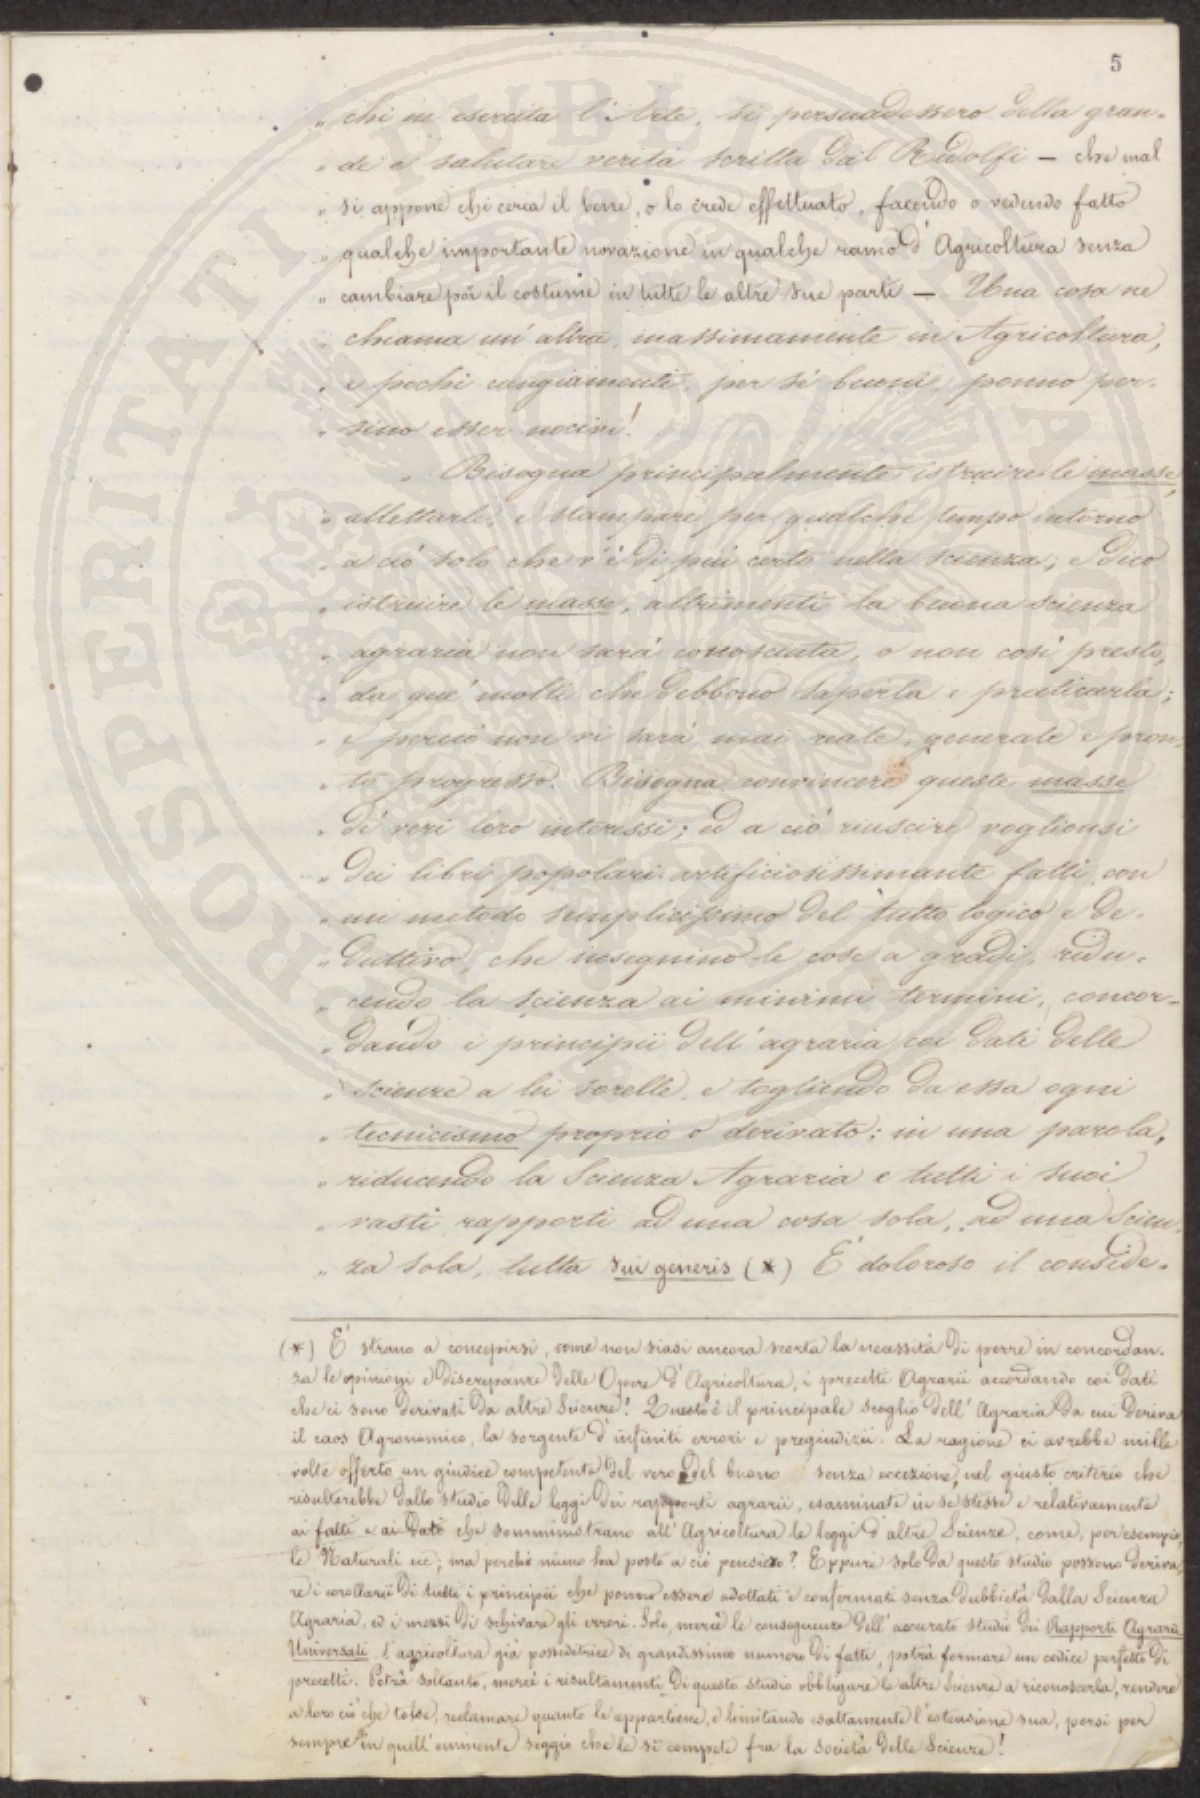 5
„ chi ne esercita l'Arte, si persuadessero della gran-
„ de e salutare verità scritta dal Ridolfi — che mal
„ si appone chi cerca il bene, o lo crede effettuato, facendo o vedendo fatto
„ qualche importante novazione in qualche ramo d'Agricoltura senza
„ cambiare poi il costume in tutte le altre sue parti — Una cosa ne
„ chiama un'altra, massimamente in Agricoltura,
„ e pochi cangiamenti, per sé buoni, ponno per-
„ sino esser nocivi!
„ Bisogna principalmente istruire le masse,
„ allettarle, e stampare per qualche tempo intorno
„ a ciò solo che v'è di più certo nella scienza; e dico
„ istruire le masse, altrimenti la buona scienza
„ agraria non sarà conosciuta, o non così presto,
„ da que' molti che debbono saperla e praticarla;
„ e perciò non vi sarà mai reale, generale e pron-
„ to progresso. Bisogna convincere queste masse
„ de' veri loro interessi; ed a ciò riuscire voglionsi
„ dei libri popolari artificiosissimante fatti, con
„ un metodo semplicissimo del tutto logico e de-
„ duttivo, che insegnino le cose a gradi, ridu-
„ cendo la scienza ai minimi termini, concor-
„ dando i principii dell'agraria coi dati delle
„ scienze a lei sorelle, e togliendo da essa ogni
„ tecnicismo proprio o derivato: in una parola,
„ riducendo la Scienza Agraria e tutti i suoi
„ vasti rapporti ad una cosa sola, ad una Scien-
„ za sola, tutta sui generis (*) È doloroso il conside-
(*) È strano a concepirsi, come non siasi ancora scorta la necessità di porre in concordan-
za le opinioni e discrepanze delle Opere d'Agricoltura, i precetti Agrarii accordando coi dati
che ci sono derivati da altre Scienze! Questo è il principale scoglio dell'Agraria da cui deriva
il caos Agronomico, la sorgente d'infiniti errori e pregiudizii. La ragione ci avrebbe mille
volte offerto un giudice competente del vero e del buono senza eccezione, nel giusto criterio che
risulterebbe dallo studio delle leggi dei rapporti agrarii, esaminate in se stesse e relativamente
ai fatti e ai dati che somministrano all'Agricoltura le leggi d'altre Scienze, come, per esempio,
le Naturali ecc; ma perché niuno ha posto a ciò pensiero? Eppure solo da questo studio possono deriva-
re i corollarii di tutti i principii che ponno essere adottati e confermati senza dubbietà dalla Scienza
Agraria, ed i mezzi di schivare gli errori. Solo, mercè le conseguenze dell'accurato studio dei Rapporti Agrarii
Universali l'agricoltura già posseditrice di grandissimo numero di fatti, potrà formare un codice perfetto di
precetti. Potrà soltanto, mercè i risultamenti di questo studio obbligare le altre Scienze a riconoscerla, rendere
a loro ciò che tolse, reclamare quanto le appartiene, e limitando esattamente l'estensione sua, porsi per
sempre in quell'eminente seggio che le si compete fra la società delle Scienze!
PROSPERITATI PUBLICAE